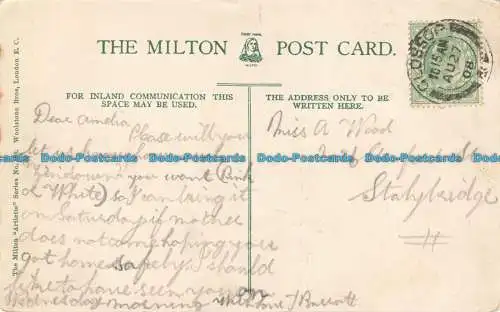 THE MILTON POST CARD.
FOR INLAND COMMUNICATION THIS
SPACE MAY BE USED.
THE ADDRESS ONLY TO BE
WRITTEN HERE.
The Milton "Artlette" Series No. Woolstone Bros, London E.C.
10 15 AM
AU 27
08
Dear Amelia
Please will you
let us know
you want (Pink
or White) so I can bring it
on Saturday if mother
does not come hoping you
got home safely. I should
like to have seen you on
Wednesday morning with love J Barratt
Miss A Wood
Stalybridge
Dodo-Postcards Dodo-Postcards Dodo-Postcards Dodo-Postcards